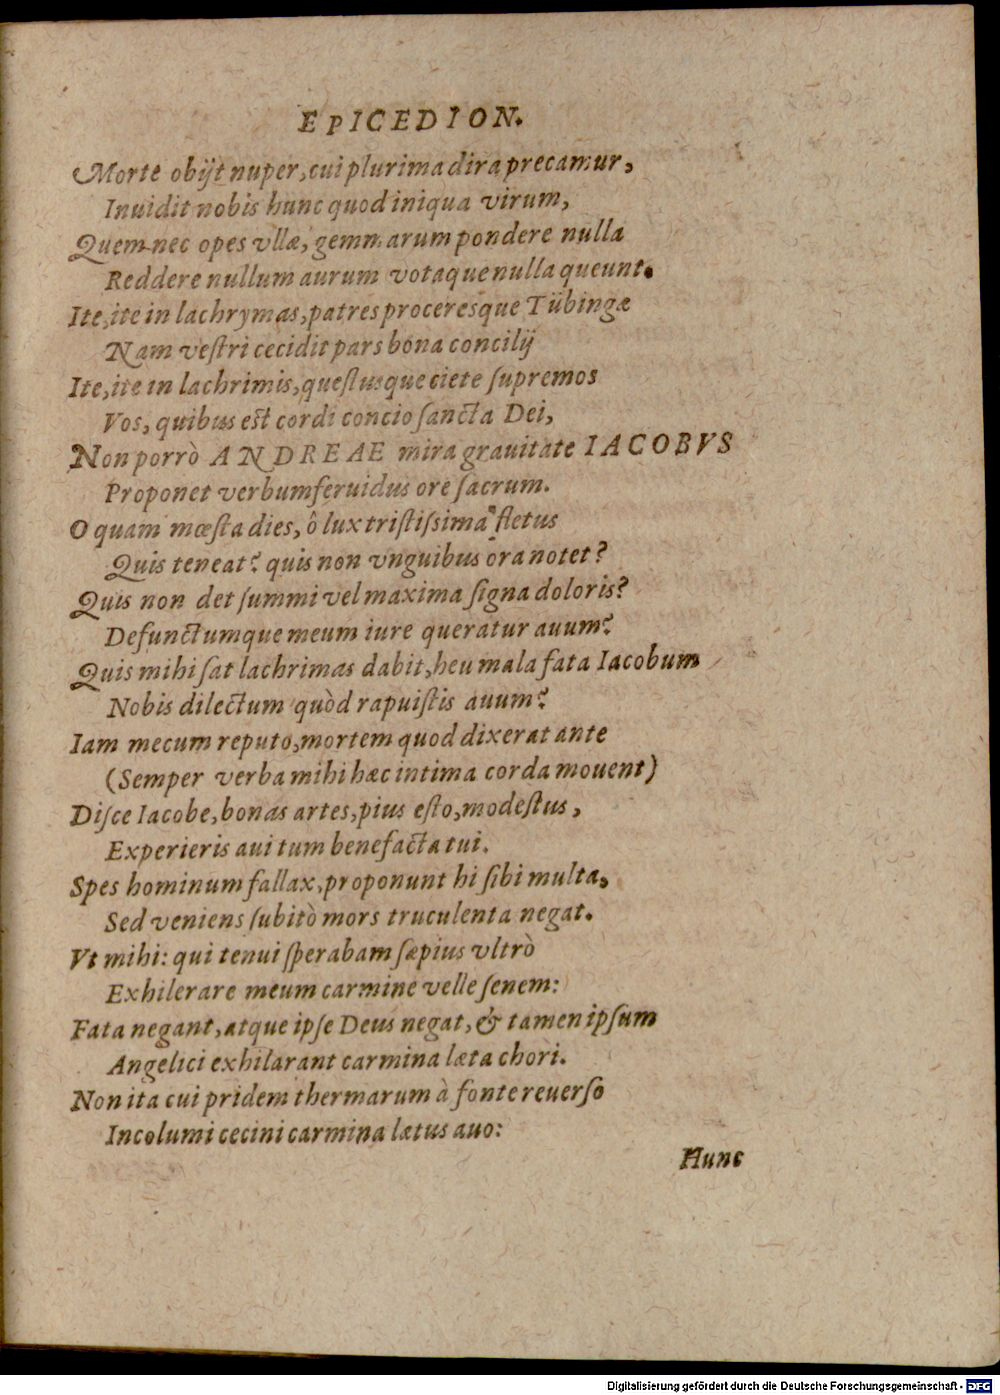 EPICEDION.
Morte obijt nuper, cui plurima dira precamur,
Inuidit nobis hunc quod iniqua virum,
Quem nec opes vllæ, gemmarum pondere nulla
Reddere nullum aurum votaque nulla queunt.
Ite, ite in lachrymas, patres proceresque Tübingæ
Nam veſtri cecidit pars bona concilij
Ite, ite in lachrimis, queſtusque ciete ſupremos
Vos, quibus est cordi concio ſancta Dei,
Non porrò ANDREAE mira grauitate IACOBVS
Proponet verbum feruidus ore ſacrum.
O quam mœſta dies, ô lux triſtiſsima fletus
Quis teneat? quis non vnguibus ora notet?
Quis non det ſummi vel maxima ſigna doloris?
Defunctumque meum iure queratur auum?
Quis mihi ſat lachrimas dabit, heu mala fata Iacobum
Nobis dilectum quòd rapuiſtis auum?
Iam mecum reputo, mortem quod dixerat ante
(Semper verba mihi hæc intima corda mouent)
Diſce Iacobe, bonas artes, pius eſto, modeſtus,
Experieris aui tum benefacta tui.
Spes hominum fallax, proponunt hi ſibi multa,
Sed veniens ſubitò mors truculenta negat.
Vt mihi: qui tenui ſperabam ſæpius vltrò
Exhilerare meum carmine velle ſenem:
Fata negant, atque ipſe Deus negat, & tamen ipſum
Angelici exhilarant carmina læta chori.
Non ita cui pridem thermarum à fonte reuerſo
Incolumi cecini carmina lætus auo:
Hunc
Digitalisierung gefördert durch die Deutsche Forschungsgemeinschaft - DFG